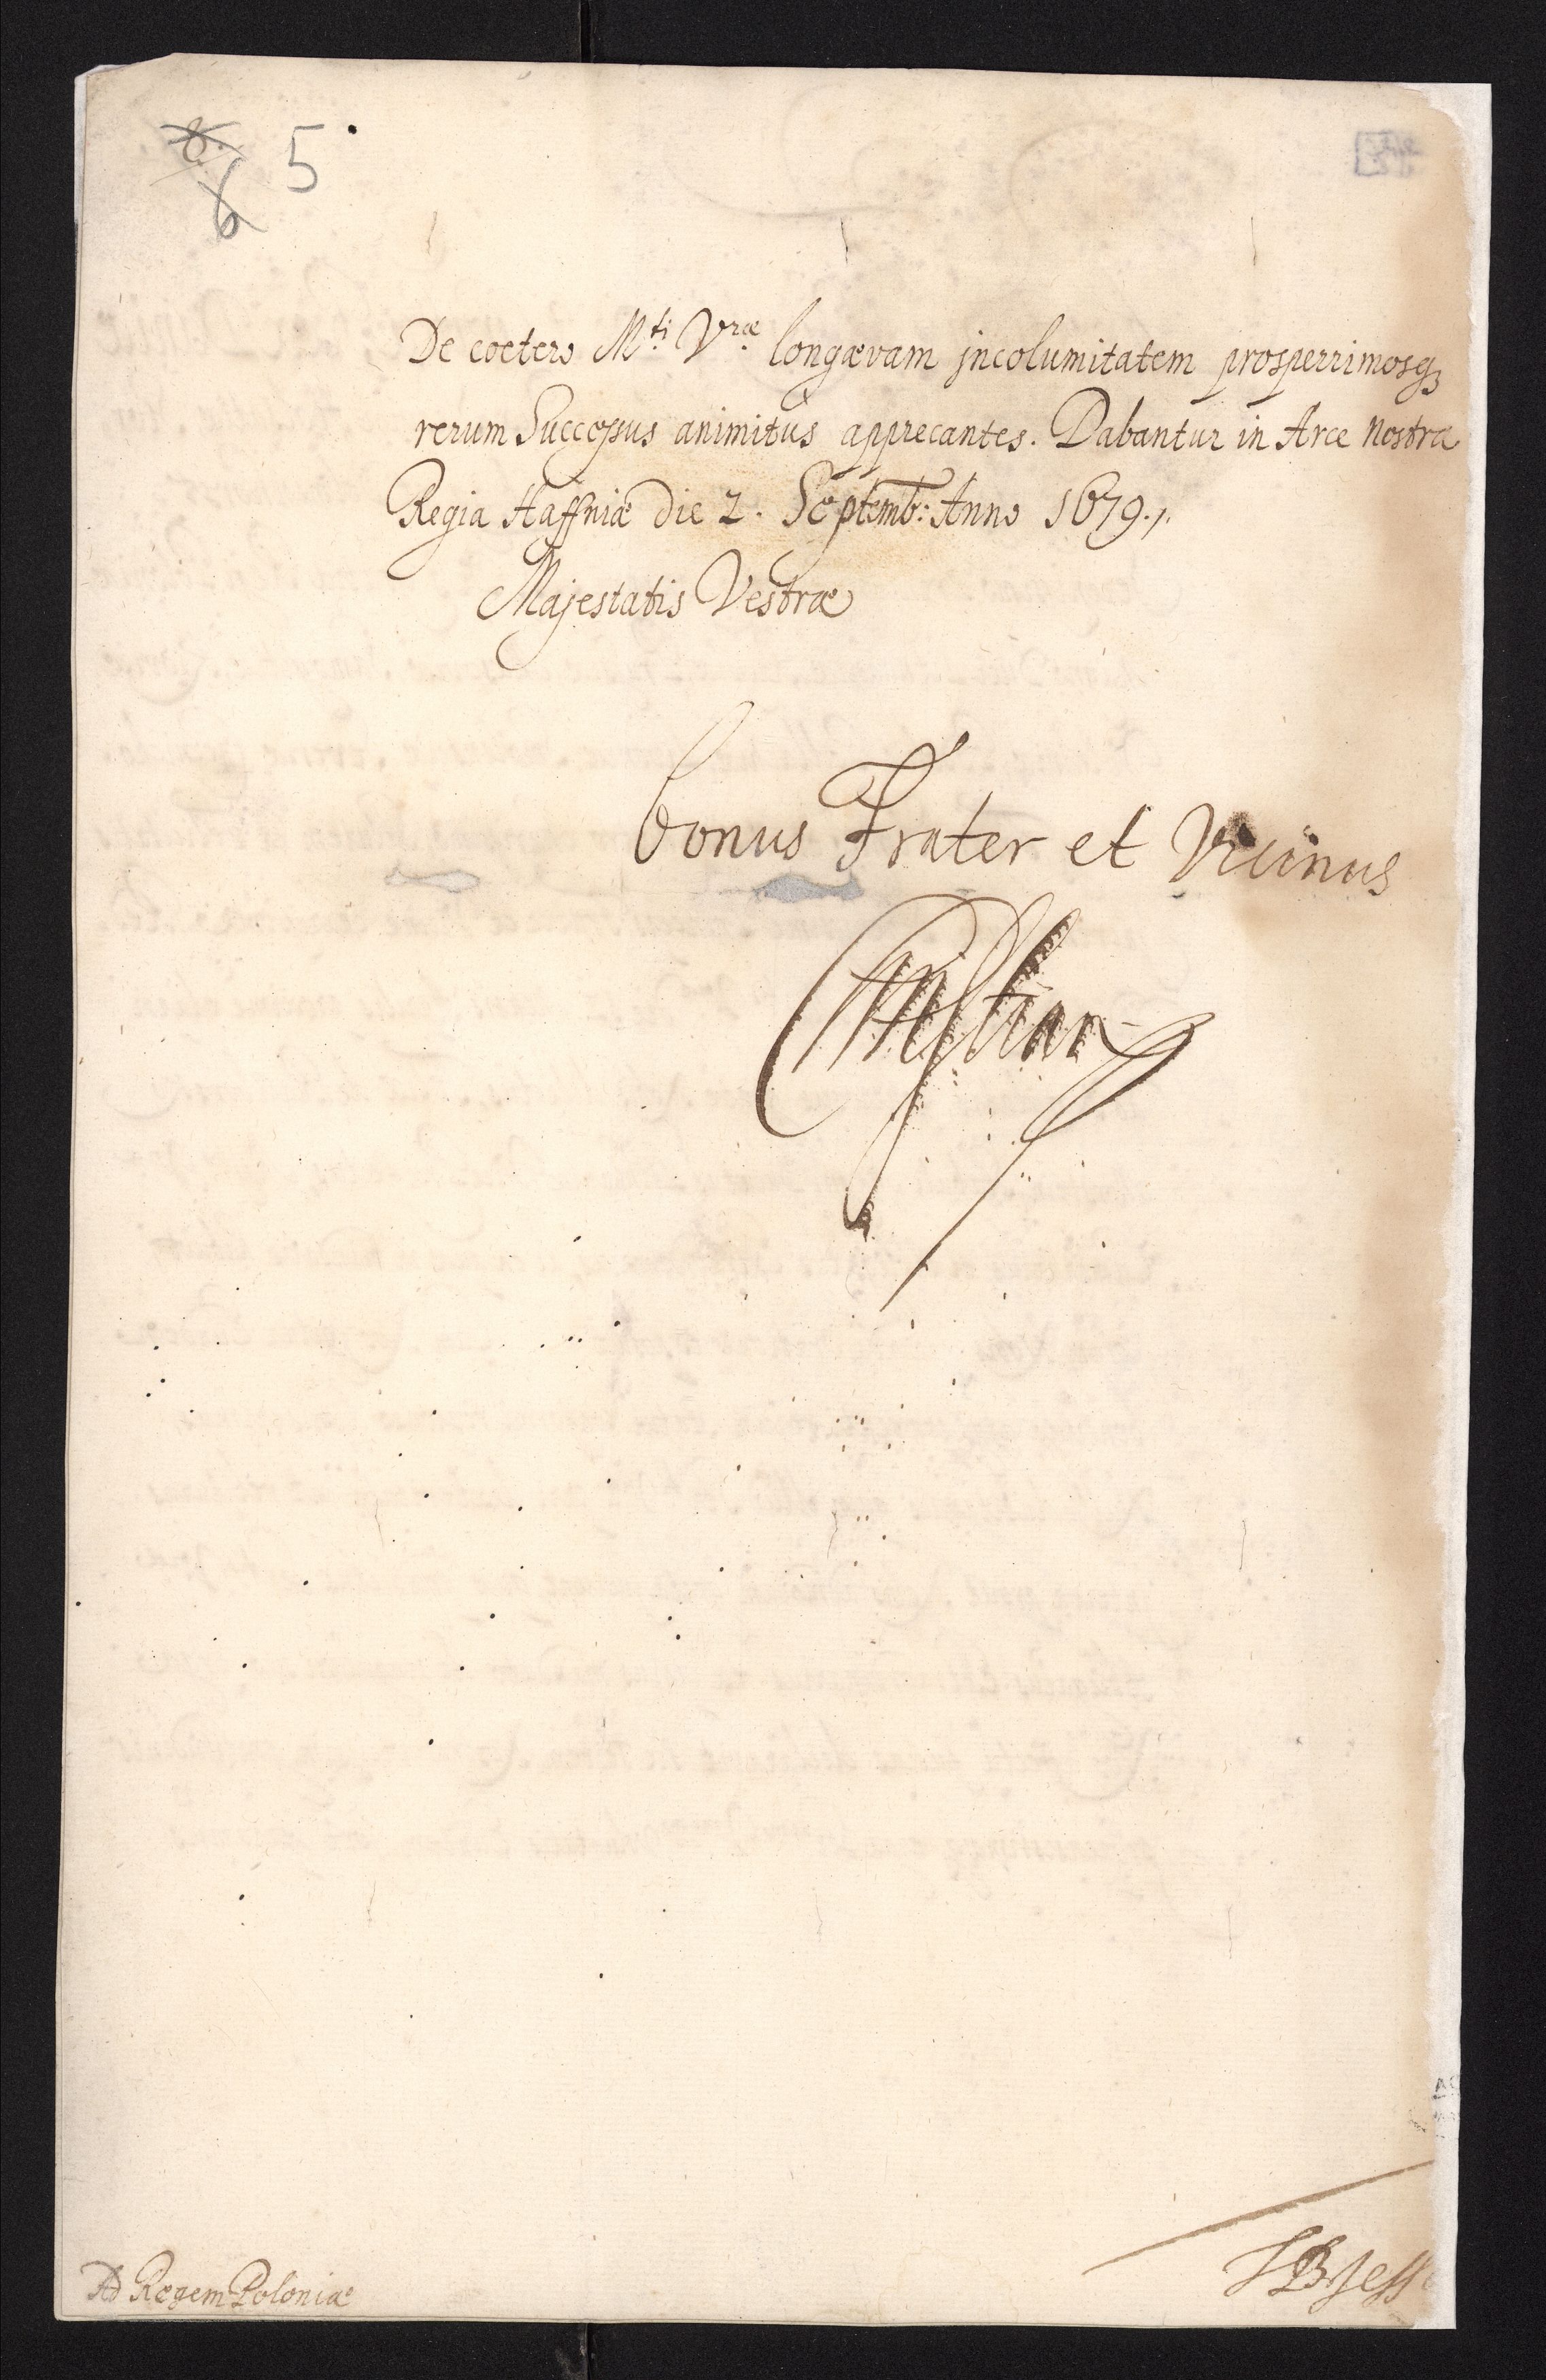 6.
6
5
De coetero M.ti V.ræ longævam jncolumitatem prosperrimosq3
rerum Successus animitus apprecantes. Dabantur in Arce nostra
Regia Haffniæ die 2. Septemb: Anno 1679.
Majestatis Vestræ
bonus Frater et Vicinus
Christian
Ad Regem Poloniæ